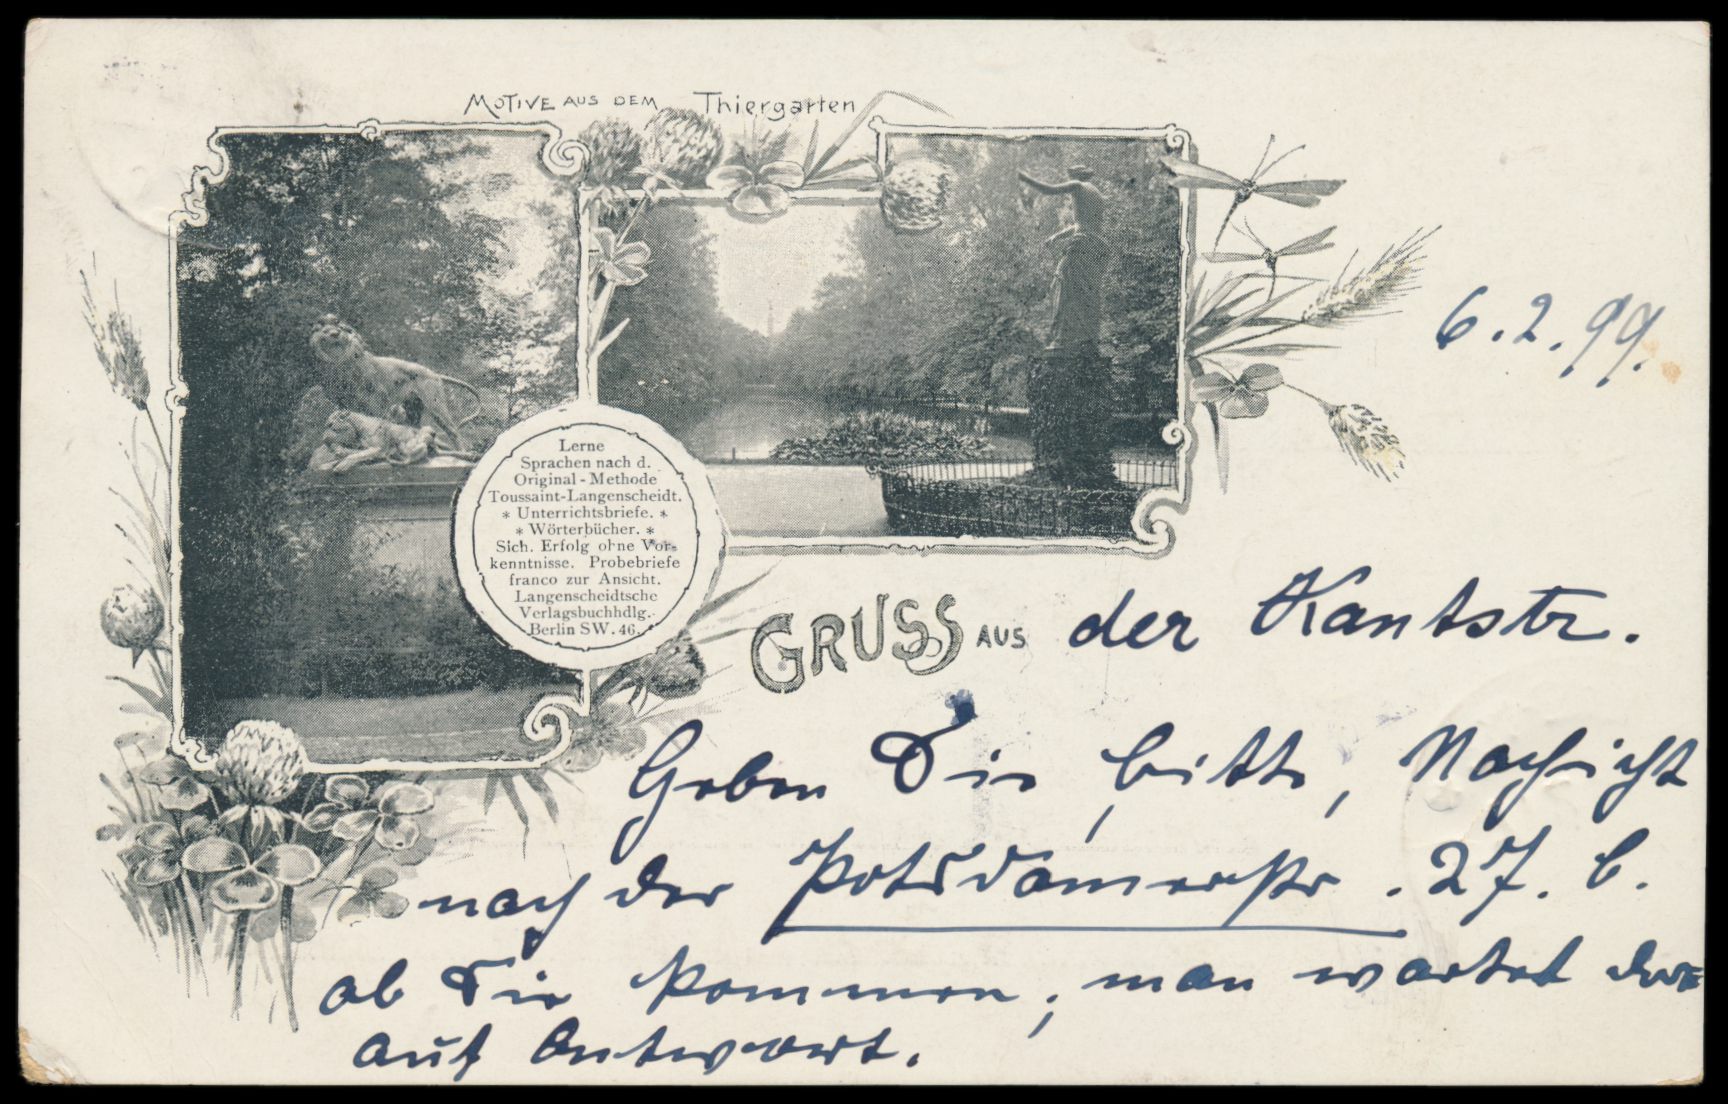 MOTIVE AUS DEM Thiergarten
6.2.99.
Lerne
Sprachen nach d.
Original-Methode
Toussaint-Langenscheidt.
* Unterrichtsbriefe. *
* Wörterbücher. *
Sich. Erfolg ohne Vor-
kenntnisse. Probebriefe
franco zur Ansicht.
Langenscheidtsche
Verlagsbuchhdlg.
Berlin SW. 46.
GRUSS AUS der Kantstr.
Geben Sie, bitte, Nachricht
nach der Potsdamerstr. 27. b.
ab Sie kommen; man wartet
auf Antwort.